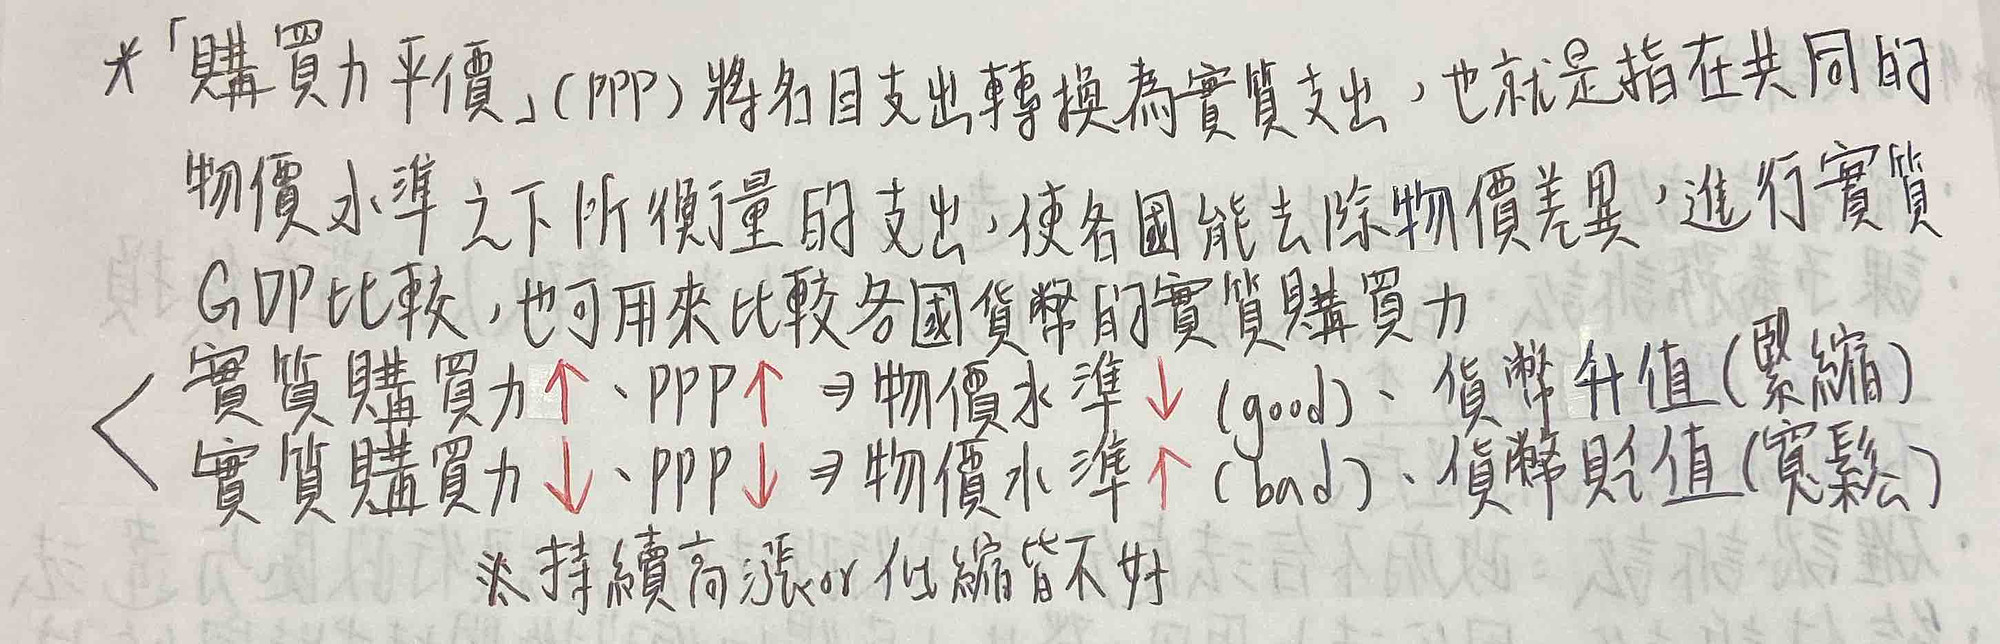 *「購買力平價」(PPP)將名目支出轉換為實質支出,也就是指在共同的
物價水準之下所衡量的支出,使各國能去除物價差異,進行實質
GDP比較,也可用來比較各國貨幣的實質購買力
實質購買力↑、PPP↑ ⇒物價水準↓(good)、貨幣升值(緊縮)
實質購買力↓、PPP↓ ⇒物價水準↑(bad)、貨幣貶值(寬鬆)
※持續高漲or低縮皆不好